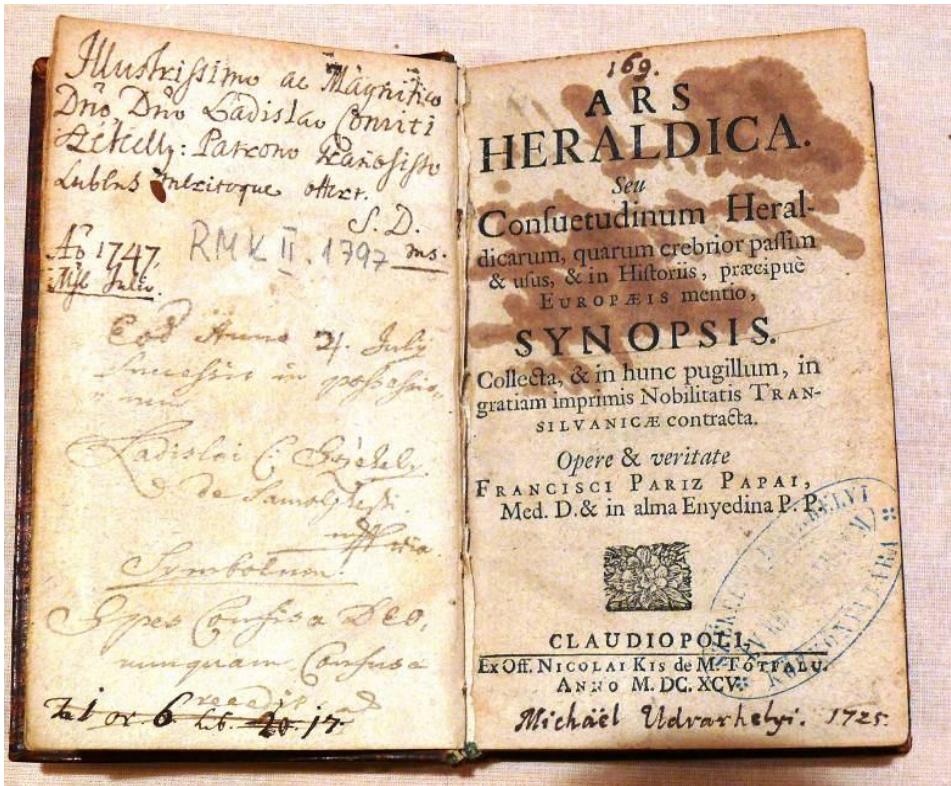 Illustrissimo ac Magnifico
Dño, Dño Ladislao Comiti
Székelly: Patrono
Lubens meritoque offert.
S. D.
ms.
Aō 1747.
Julii.
RMK II. 1797
Eod Anno 21. July
Successit in possessio-
nem
Ladislai C: Székely
de
Symbolum.
Spes Confisa DEO,
nunquam Confusa
recedit
or. 6 20. 17.
169.
ARS
HERALDICA.
Seu
Conſuetudinum Heral-
dicarum, quarum crebrior paſſim
& uſus, & in Hiſtoriis, præcipuè
EUROPÆIS mentio,
SYNOPSIS.
Collecta, & in hunc pugillum, in
gratiam imprimis Nobilitatis TRAN-
SILVANICÆ contracta.
Opere & veritate
FRANCISCI PARIZ PAPAI,
Med. D. & in alma Enyedina P. P.
CLAUDIOPOLI,
Ex Off. NICOLAI KIS de M. TÓTFALU.
ANNO M. DC. XCV.
Michaël Udvarhelyi. 1725.